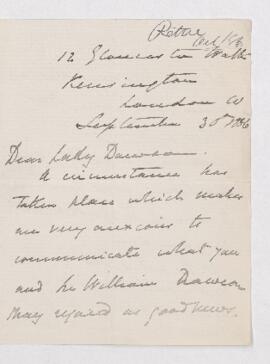 12 Gloucester Walk
Kensington
London W
September 30th 1886
Dear Lady Dawson.
A circumstance has
taken place which makes
me very anxious to
communicate what you
and Sir William Dawson
may regard as good news.